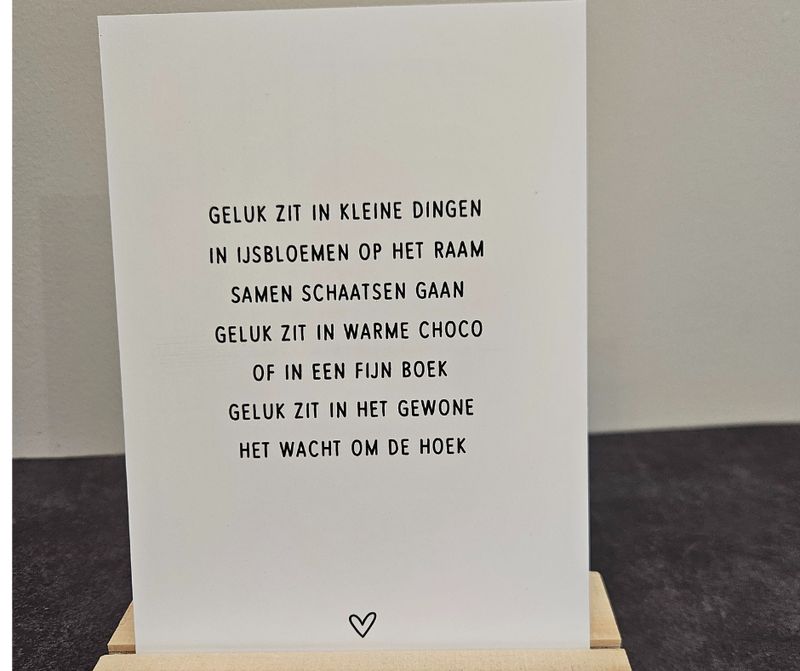 GELUK ZIT IN KLEINE DINGEN
IN IJSBLOEMEN OP HET RAAM
SAMEN SCHAATSEN GAAN
GELUK ZIT IN WARME CHOCO
OF IN EEN FIJN BOEK
GELUK ZIT IN HET GEWONE
HET WACHT OM DE HOEK